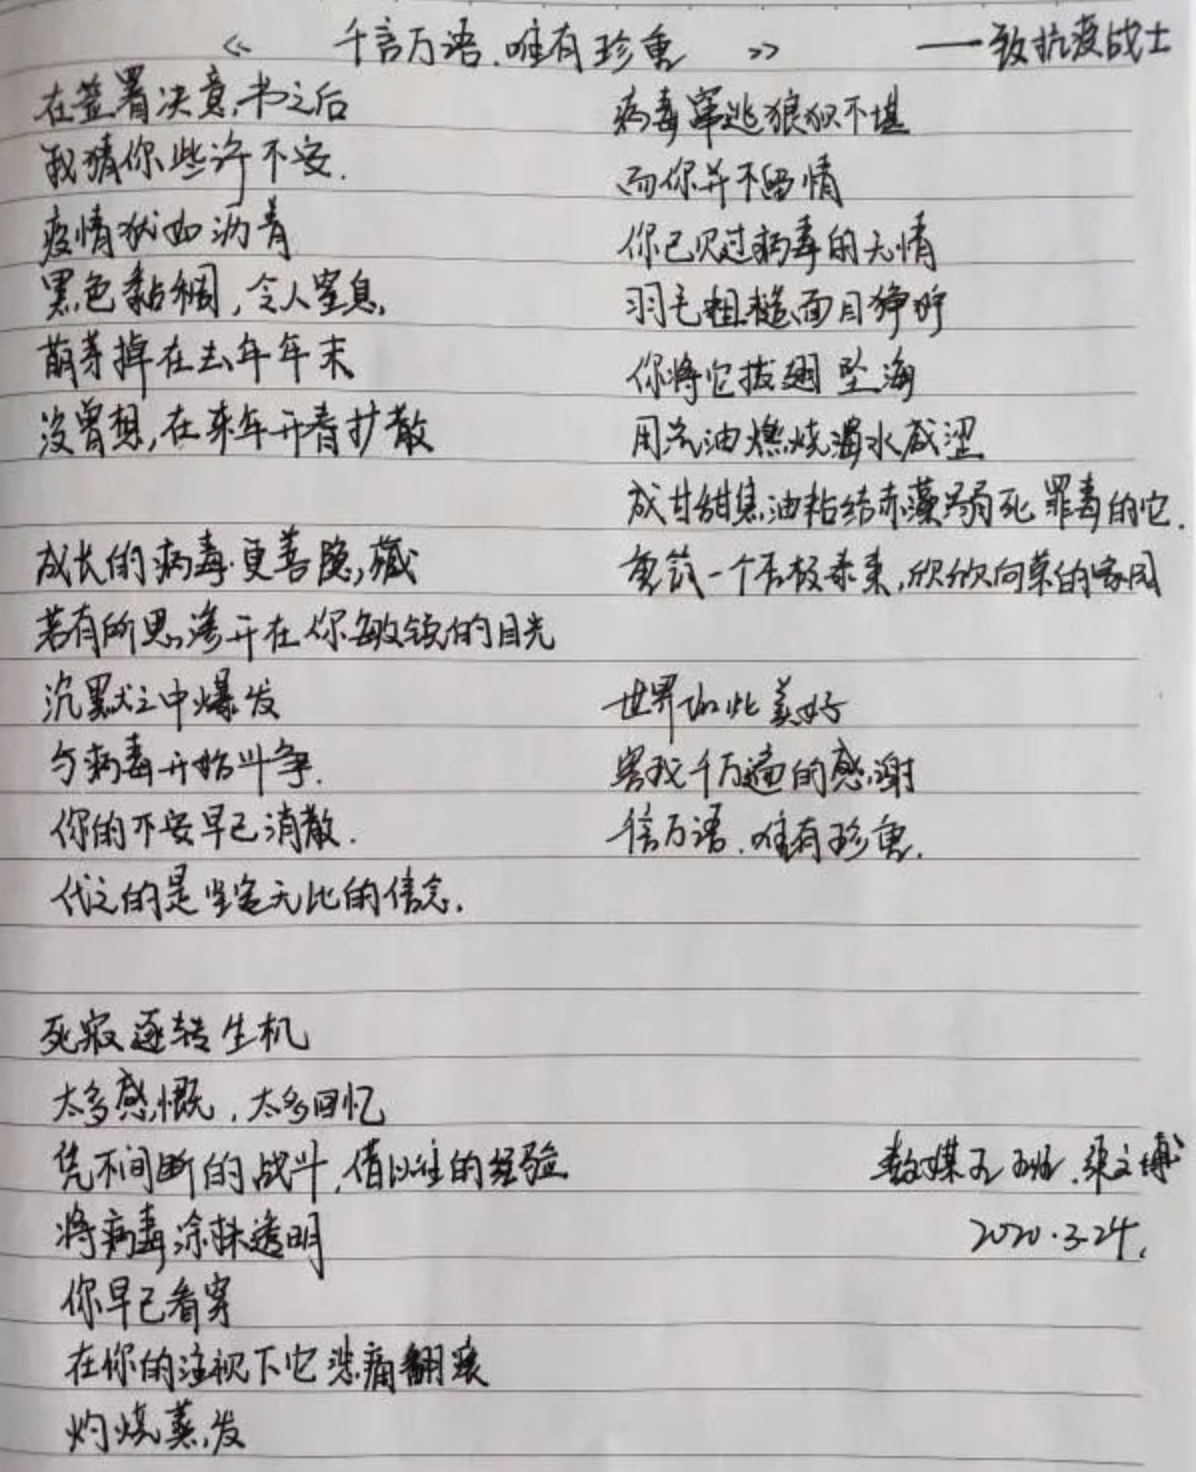 《 千言万语,唯有珍重 》 ——致抗疫战士
在签署决意书之后
我猜你些许不安.
疫情犹如沥青
黑色黏稠,令人窒息.
萌芽掉在去年年末
没曾想,在来年开春扩散
成长的病毒更善隐藏
若有所思渗开在你敏锐的目光
沉默之中爆发
与病毒开始斗争.
你的不安早已消散.
代之的是坚定无比的信念.
死寂逐转生机
太多感慨,太多回忆
凭不间断的战斗,借以往的经验
将病毒涂抹透明
你早已看穿
在你的注视下它悲痛翻滚
灼烧蒸发
病毒窜逃狼狈不堪
而你并不留情
你已见过病毒的无情
羽毛粗糙面目狰狞
你将它拔翅坠海
用汽油燃烧海水咸涩
成甘甜焦油粘结赤藻溺死罪毒的它.
重筑一个否极泰来,欣欣向荣的家园
世界如此美好
害我千万遍的感谢
千言万语,唯有珍重.
数媒五班.张文博
2020.3.24.